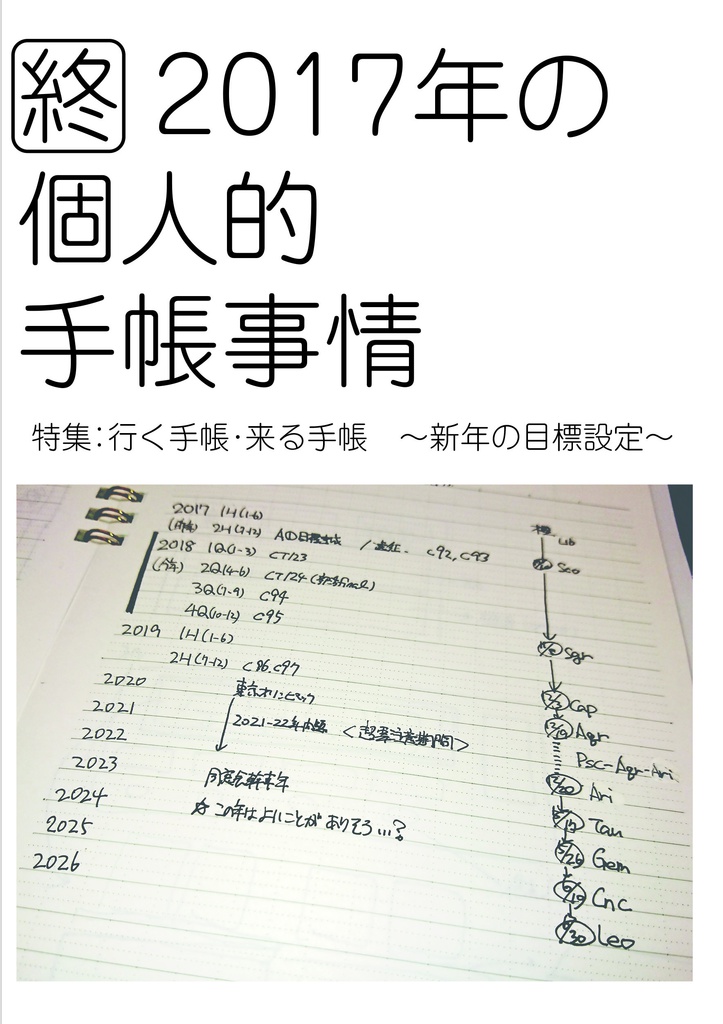 終 2017年の
個人的
手帳事情
特集:行く手帳・来る手帳 〜新年の目標設定〜
2017 1H(1-6)
2H(7-12) Aの目標 / . C92, C93
2018 1Q(1-3) CT/23
2Q(4-6) CT/24
3Q(7-9) C94
4Q(10-12) C95
2019 1H(1-6)
2H(7-12) C96, C97
2020 東京オリンピック
2021 2021-22年 <超要注意期間>
2022
2023 同窓会幹事年
2024 ☆この年はよいことがありそう...?
2025
2026
Lib
Sco
Sgr
Cap
Aqr
Psc-Aqr-Ari
2/20 Ari
Tau
5/26 Gem
6/19 Cnc
Leo